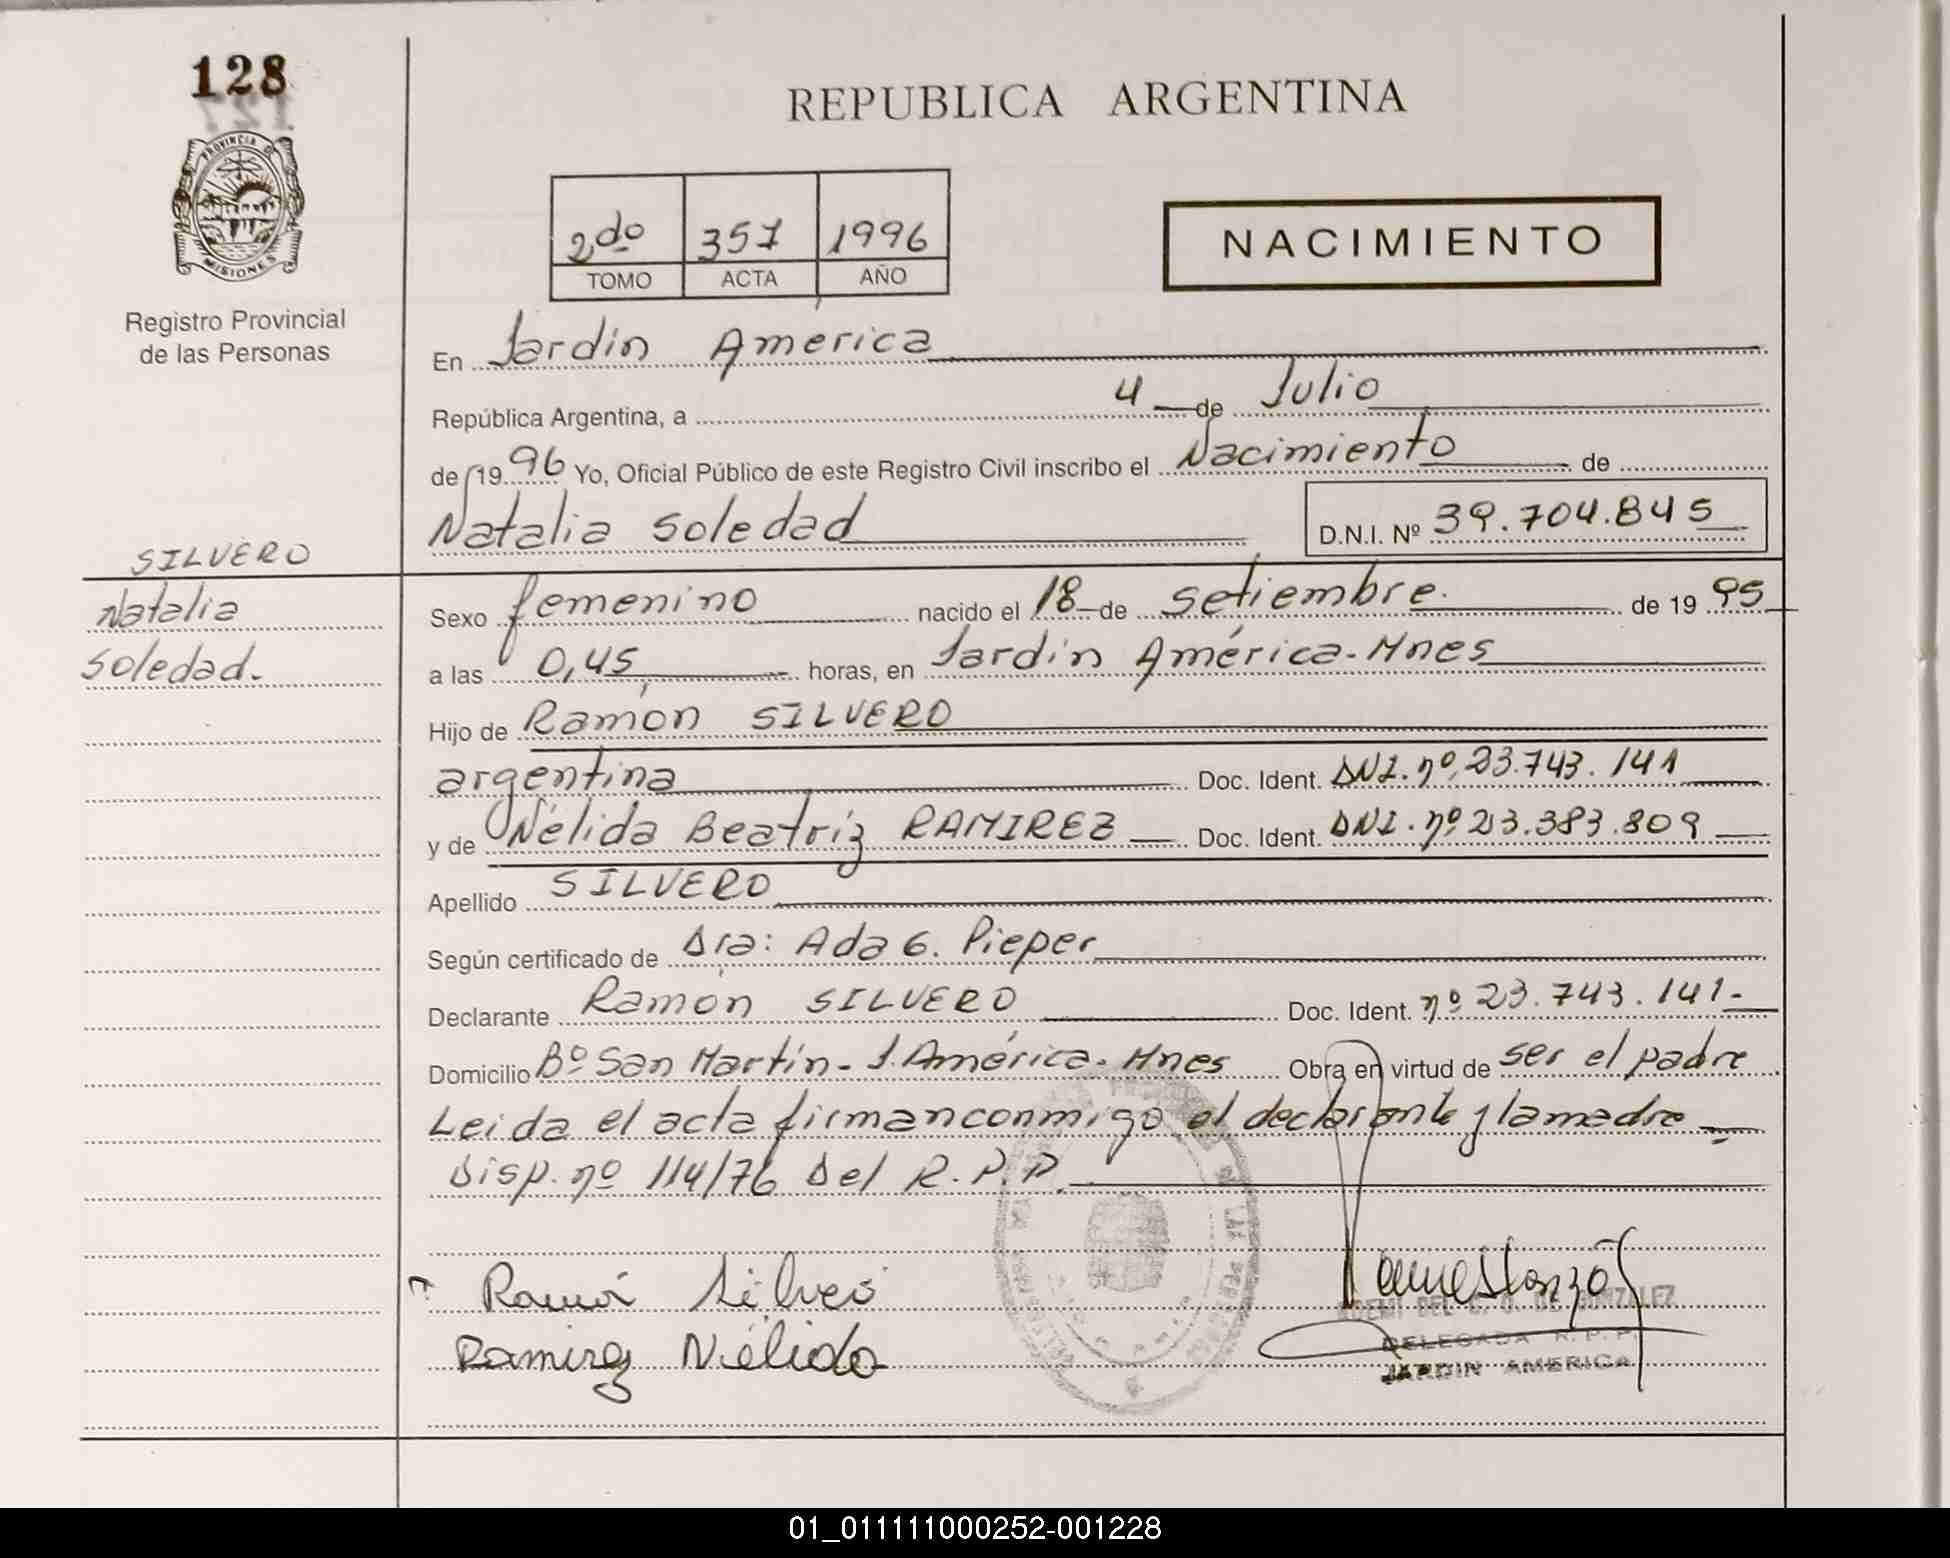 128
PROVINCIA DE
MISIONES
Registro Provincial
de las Personas
SILVERO
Natalia
Soledad.
REPUBLICA ARGENTINA
2do 357 1996
TOMO ACTA AÑO
NACIMIENTO
En Jardin America
República Argentina, a 4 de Julio
de 1996 Yo, Oficial Público de este Registro Civil inscribo el Nacimiento de
Natalia Soledad D.N.I. Nº 39.704.845
Sexo femenino nacido el 18 de Setiembre de 1995
a las 0,45 horas, en Jardin América-Mnes
Hijo de Ramon SILVERO
argentina Doc. Ident. DNI. nº 23.743.141
y de Nélida Beatríz RAMIREZ Doc. Ident. DNI. nº 23.383.809
Apellido SILVERO
Según certificado de Dra: Ada G. Pieper
Declarante Ramón SILVERO Doc. Ident. nº 23.743.141-
Domicilio Bº San Martín- J. América- Mnes Obra en virtud de ser el padre
Leida el acta firman conmigo el declarante y la madre
Disp. nº 114/76 Del R.P.P.
Ramón Silvero
Ramirez Nélida
NOEMI DEL C. O. DE GONZALEZ
DELEGADA R.P.P.
JARDIN AMERICA
01_011111000252-001228